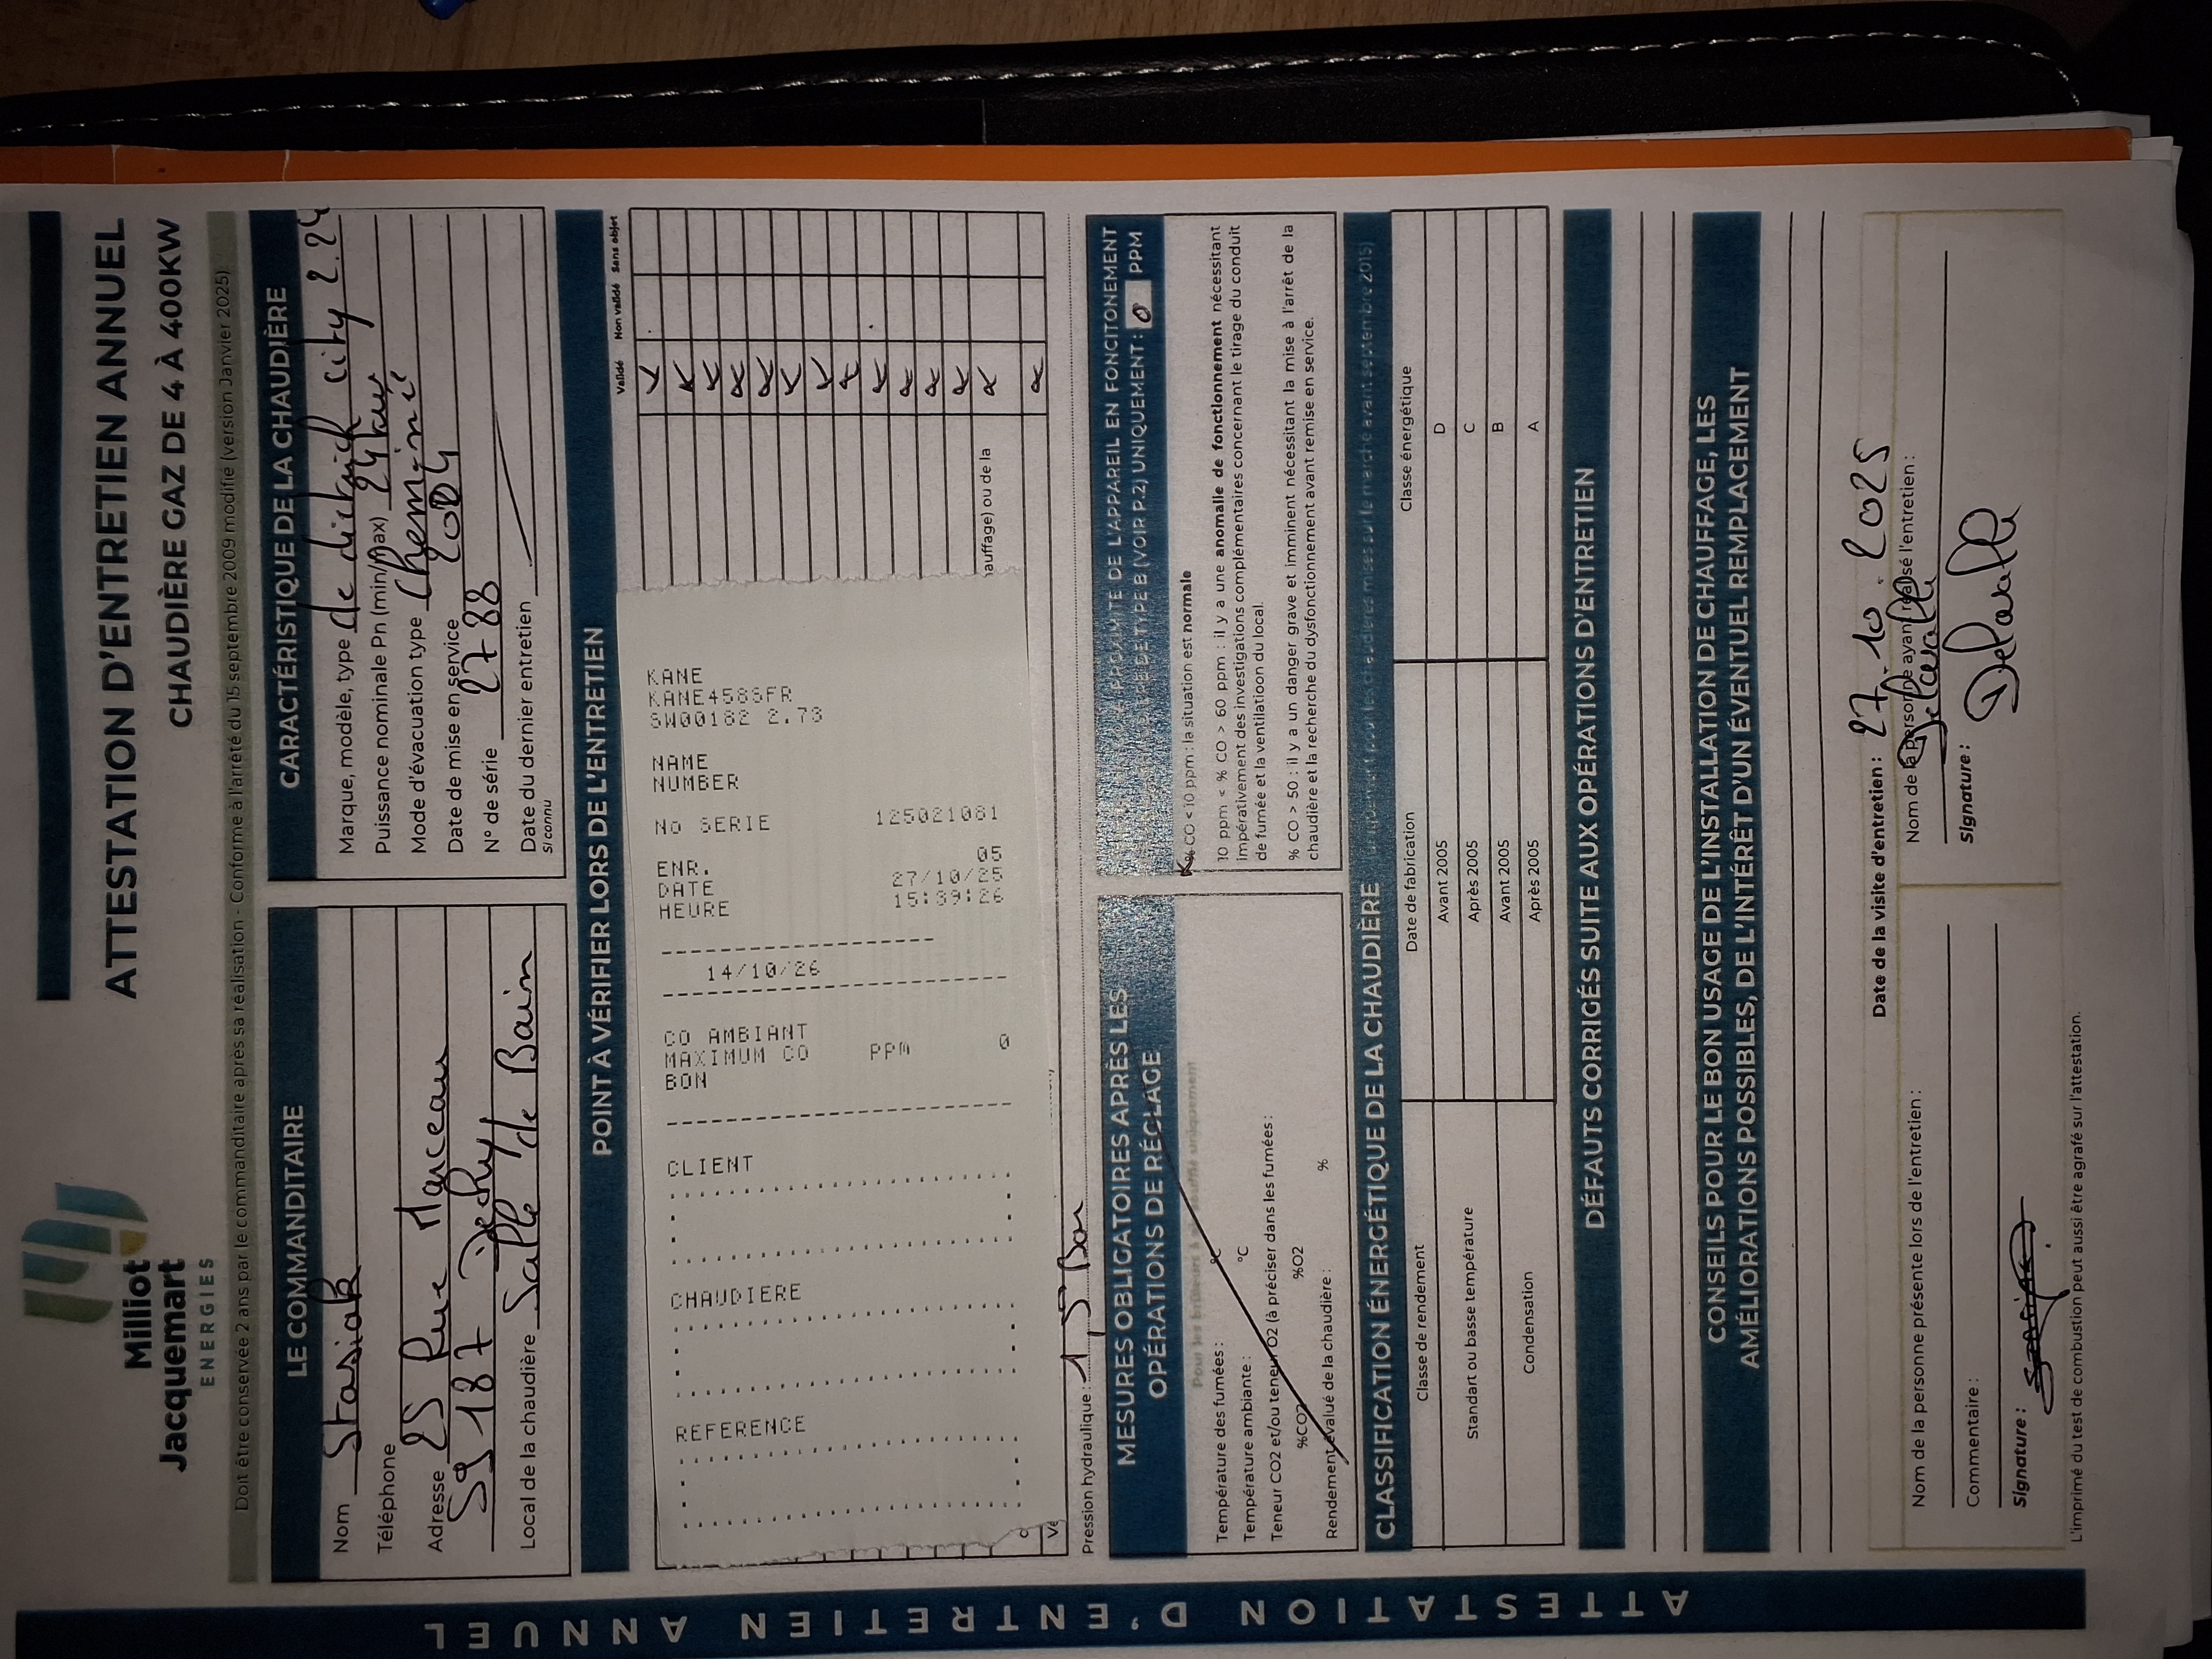 Milliot
Jacquemart
ENERGIES
ATTESTATION D'ENTRETIEN ANNUEL
CHAUDIÈRE GAZ DE 4 À 400KW
Doit être conservée 2 ans par le commanditaire après sa réalisation - Conforme à l'arrêté du 15 septembre 2009 modifié (version Janvier 2025).
LE COMMANDITAIRE
Nom Stasiak
Téléphone
Adresse 25 Rue Manceau
59187 Dechy
Local de la chaudière Salle de Bain
CARACTÉRISTIQUE DE LA CHAUDIÈRE
Marque, modèle, type de dietrich city 2.24
Puissance nominale Pn (min/max) 24 kw
Mode d'évacuation type Cheminé
Date de mise en service 2004
N° de série 2788
Date du dernier entretien
Si connu
POINT À VÉRIFIER LORS DE L'ENTRETIEN
Validé Non validé Sans objet
auffage) ou de la
KANE
KANE458SFR
SW00182 2.73
NAME
NUMBER
No SERIE 125021081
ENR. 05
DATE 27/10/25
HEURE 15:39:26
14/10/26
CO AMBIANT
MAXIMUM CO PPM 0
BON
CLIENT
CHAUDIERE
REFERENCE
Pression hydraulique : 1,5 Bar
MESURES OBLIGATOIRES APRÈS LES
OPÉRATIONS DE RÉGLAGE
Température des fumées : °C
Température ambiante : °C
Teneur CO2 et/ou teneur O2 (à préciser dans les fumées) :
%CO2 %O2
Rendement évalué de la chaudière : %
PROXIMITÉ DE L'APPAREIL EN FONCITONEMENT
DE TYPE B (VOIR P.2) UNIQUEMENT : 0 PPM
% CO < 10 ppm : la situation est normale
10 ppm < % CO > 60 ppm : il y a une anomalie de fonctionnement nécessitant
impérativement des investigations complémentaires concernant le tirage du conduit
de fumée et la ventilatioon du local.
% CO > 50 : il y a un danger grave et imminent nécessitant la mise à l'arrêt de la
chaudière et la recherche du dysfonctionnement avant remise en service.
CLASSIFICATION ÉNERGÉTIQUE DE LA CHAUDIÈRE
Classe de rendement Date de fabrication Classe énergétique
Standart ou basse température Avant 2005 D
Après 2005 C
Condensation Avant 2005 B
Après 2005 A
DÉFAUTS CORRIGÉS SUITE AUX OPÉRATIONS D'ENTRETIEN
CONSEILS POUR LE BON USAGE DE L'INSTALLATION DE CHAUFFAGE, LES
AMÉLIORATIONS POSSIBLES, DE L'INTÉRÊT D'UN ÉVENTUEL REMPLACEMENT
Date de la visite d'entretien : 27.10.2025
Nom de la personne présente lors de l'entretien :
Commentaire :
Signature :
Nom de la personne ayant réalisé l'entretien :
Signature :
L'imprimé du test de combustion peut aussi être agrafé sur l'attestation.
ATTESTATION D'ENTRETIEN ANNUEL